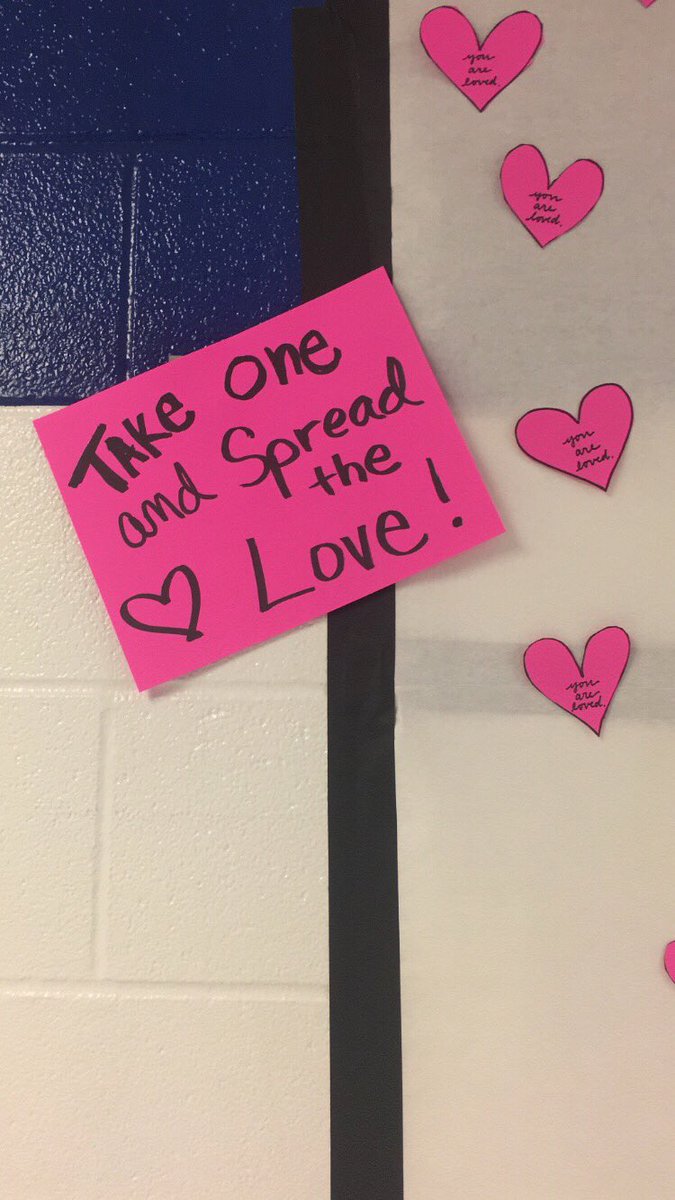 Take One
and Spread
the
♡ Love!
you
are
loved.
you
are
loved.
you
are
loved.
you
are
loved.